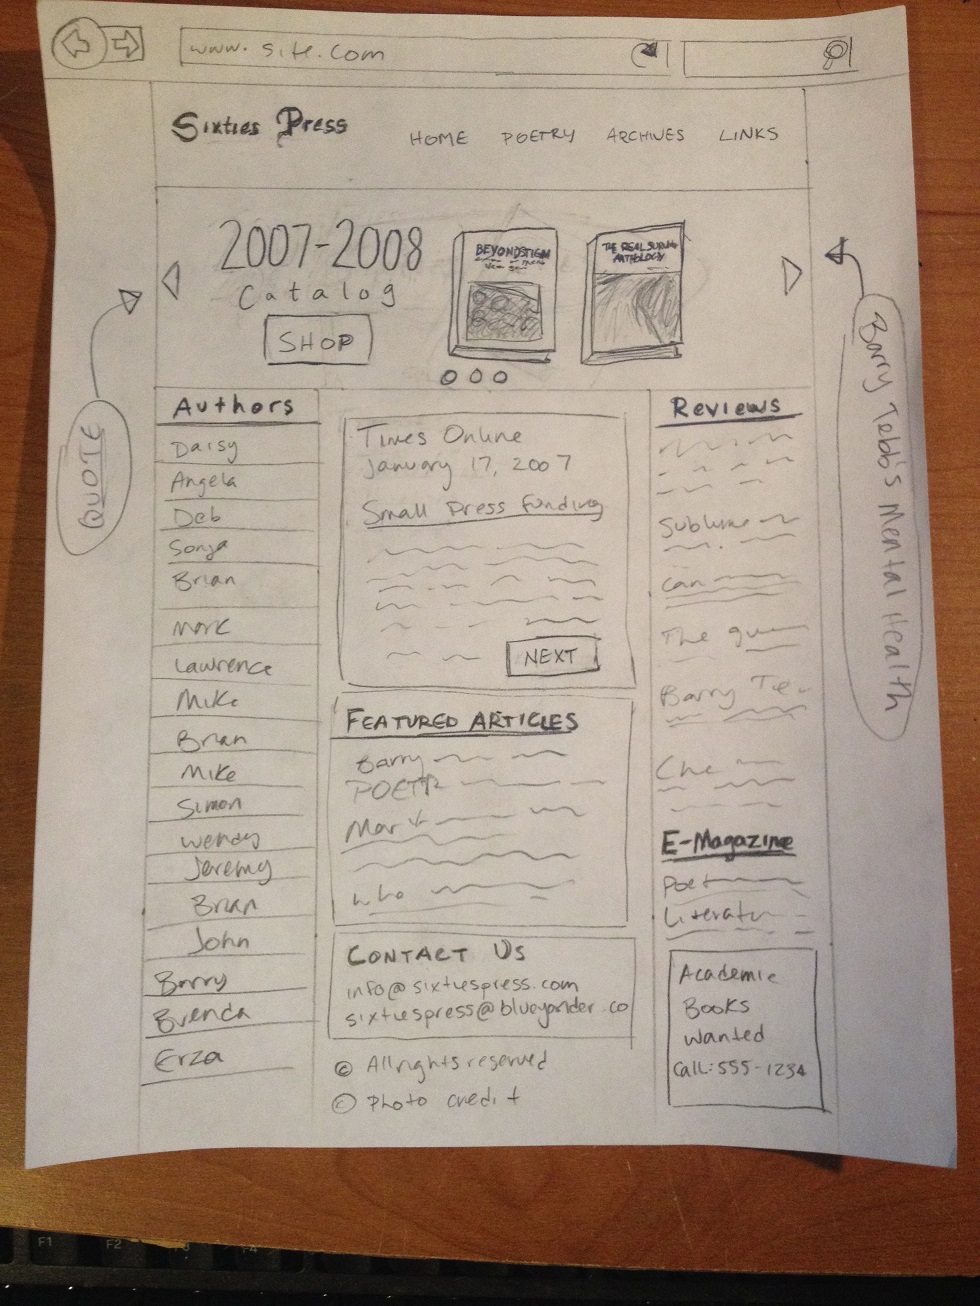 www.site.com
Sixties Press
HOME POETRY ARCHIVES LINKS
QUOTE
2007-2008
Catalog
SHOP
BEYOND STIGMA
THE REAL SURVIVORS ANTHOLOGY
Barry Tebb's Mental Health
Authors
Daisy
Angela
Deb
Sonya
Brian
Mark
Lawrence
Mike
Brian
Mike
Simon
Wendy
Jeremy
Brian
John
Barry
Brenda
Erza
Times Online
January 17, 2007
Small Press Funding
NEXT
FEATURED ARTICLES
Barry
POETR
Mark
who
CONTACT US
info@sixtiespress.com
sixtiespress@blueyonder.co
© All rights reserved
© Photo credit
Reviews
Sublime
Can
The gu
Barry Te
Che
E-Magazine
Poet
Literatur
Academic
Books
Wanted
Call: 555-1234
F1
F2
F3
F4